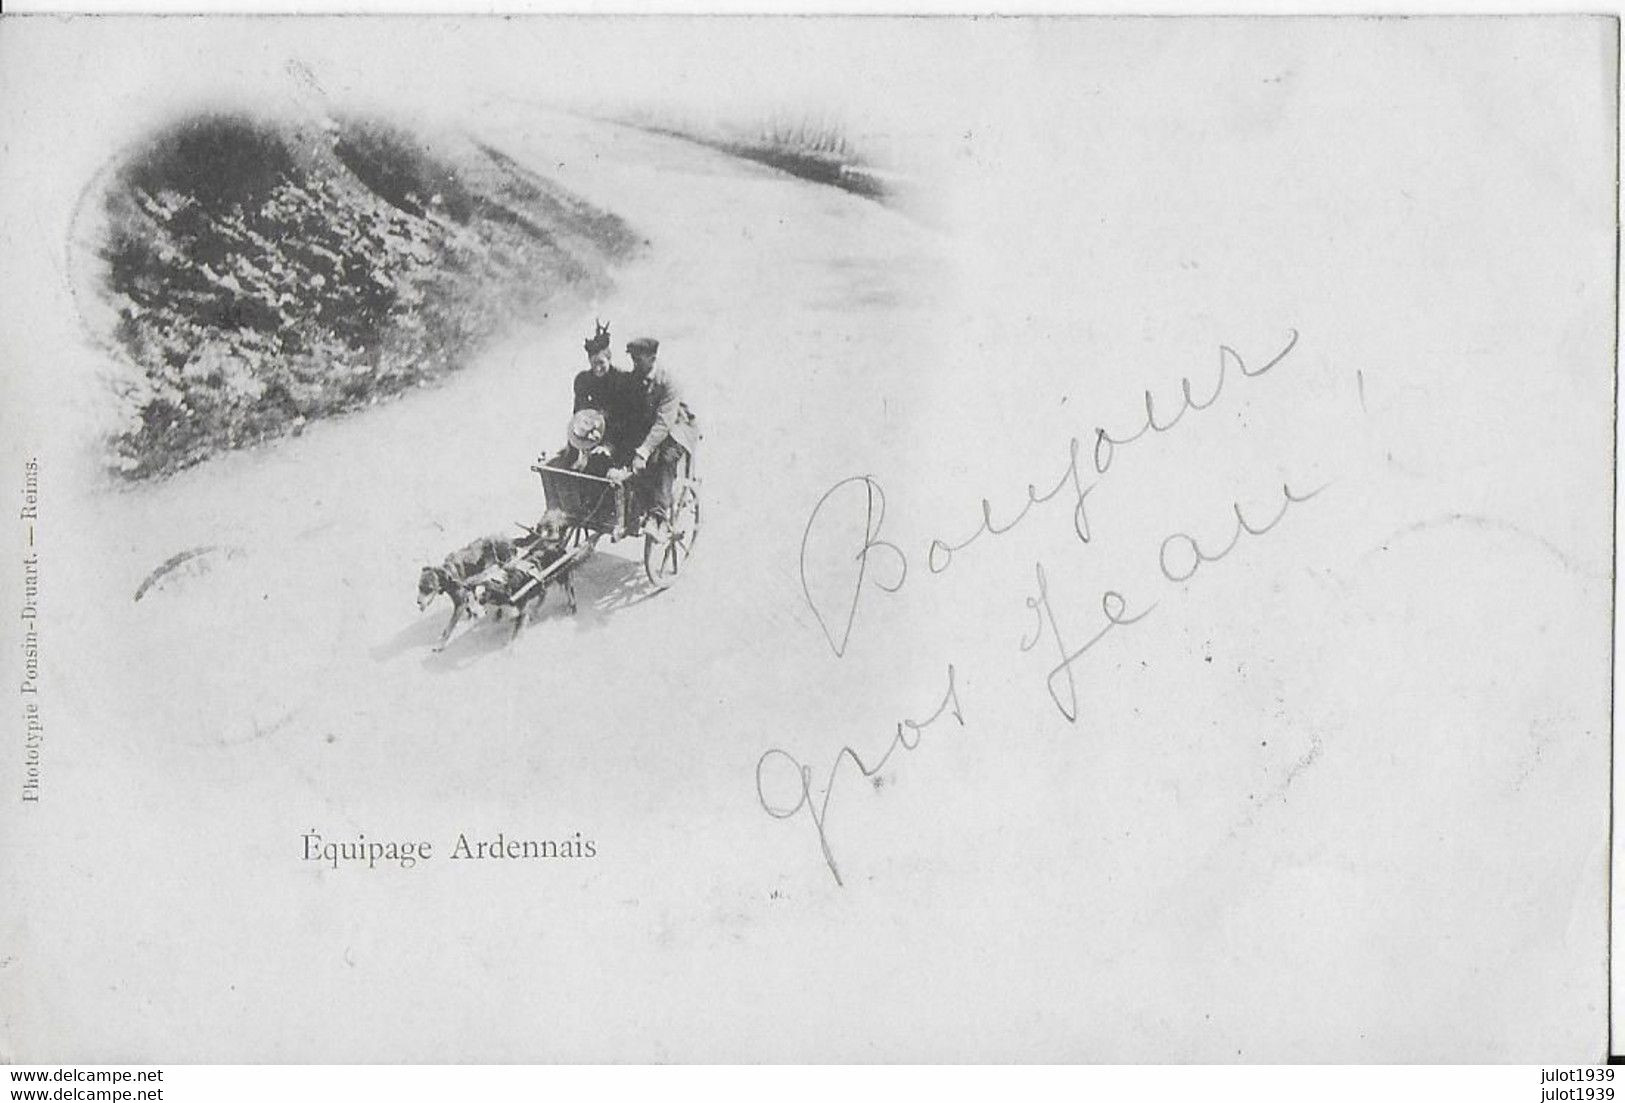 Phototypie Ponsin-Druart. — Reims.
Bonjour
gros Jean
Équipage Ardennais
www.delcampe.net
www.delcampe.net
julot1939
julot1939